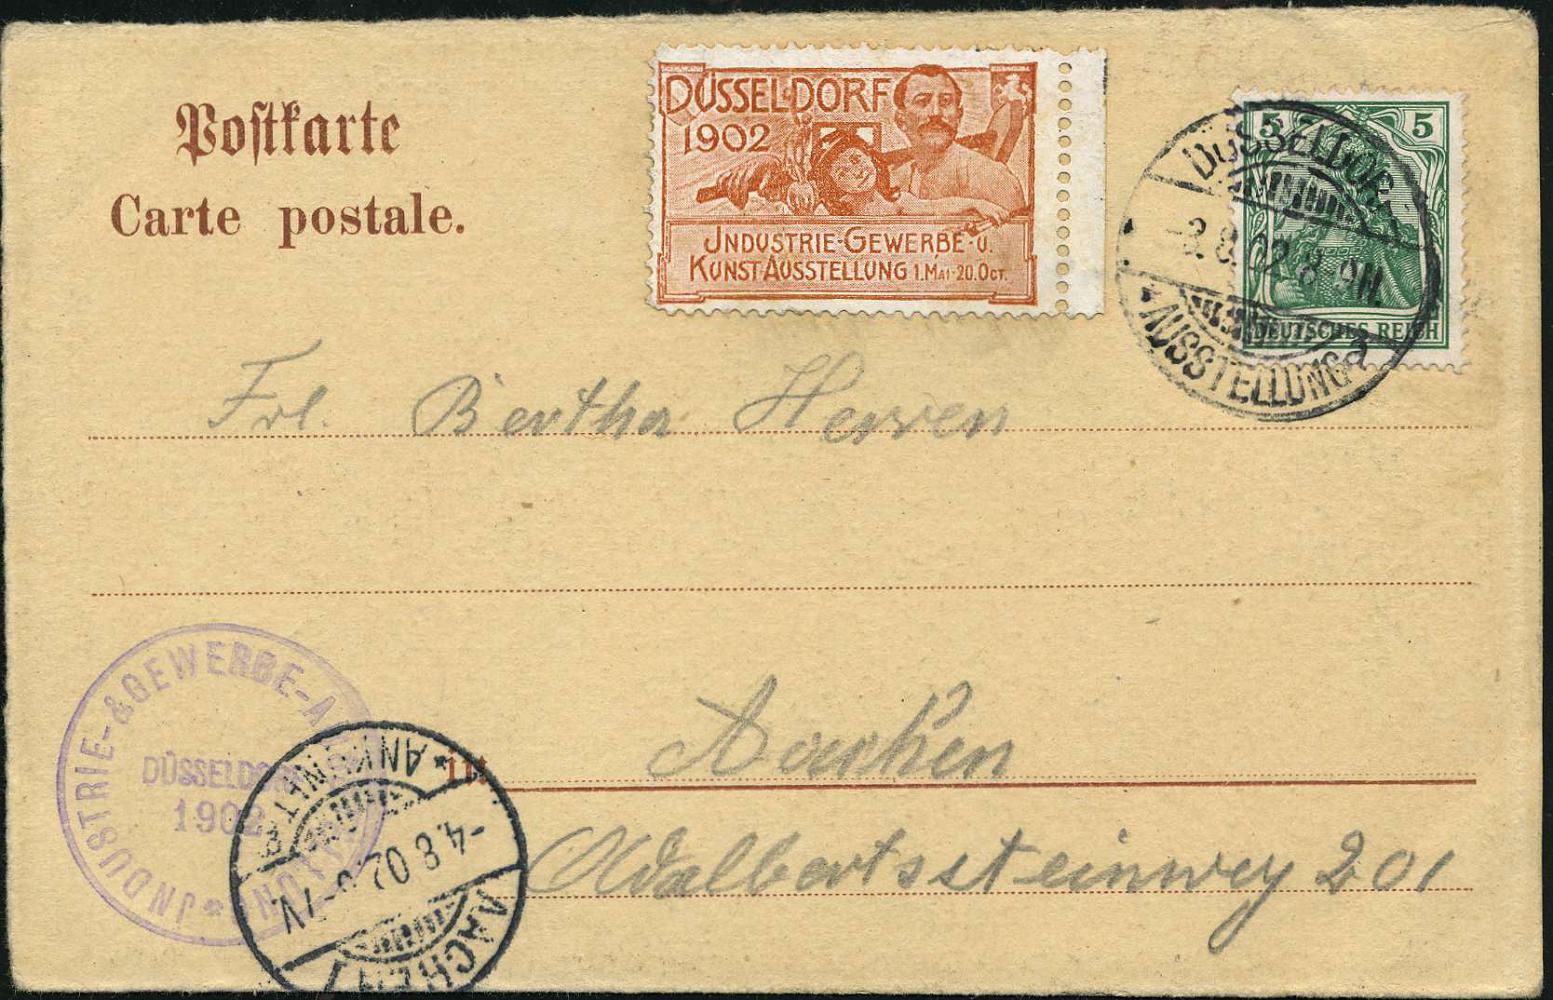 Postkarte
Carte postale.
DÜSSELDORF
1902
JNDUSTRIE-GEWERBE-U.
KUNST-AUSSTELLUNG 1.MAI-20.OCT.
5 5
DEUTSCHES REICH
DÜSSELDORF
-3.8.02.8-9N.
* AUSSTELLUNG a
Frl. Bertha Herren
in Aachen
Adalbertssteinweg 201
JNDUSTRIE-&GEWERBE-A
DÜSSELDORF
1902
AACHEN 1
-4.8.02.6-7V